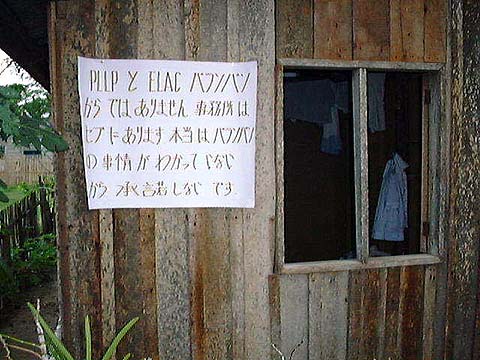 PLLP と ELAC バフンバン
からではありません 事務所は
セブにあります 本当はバフンバン
の事情がわかっていない
から 承諾しない です.